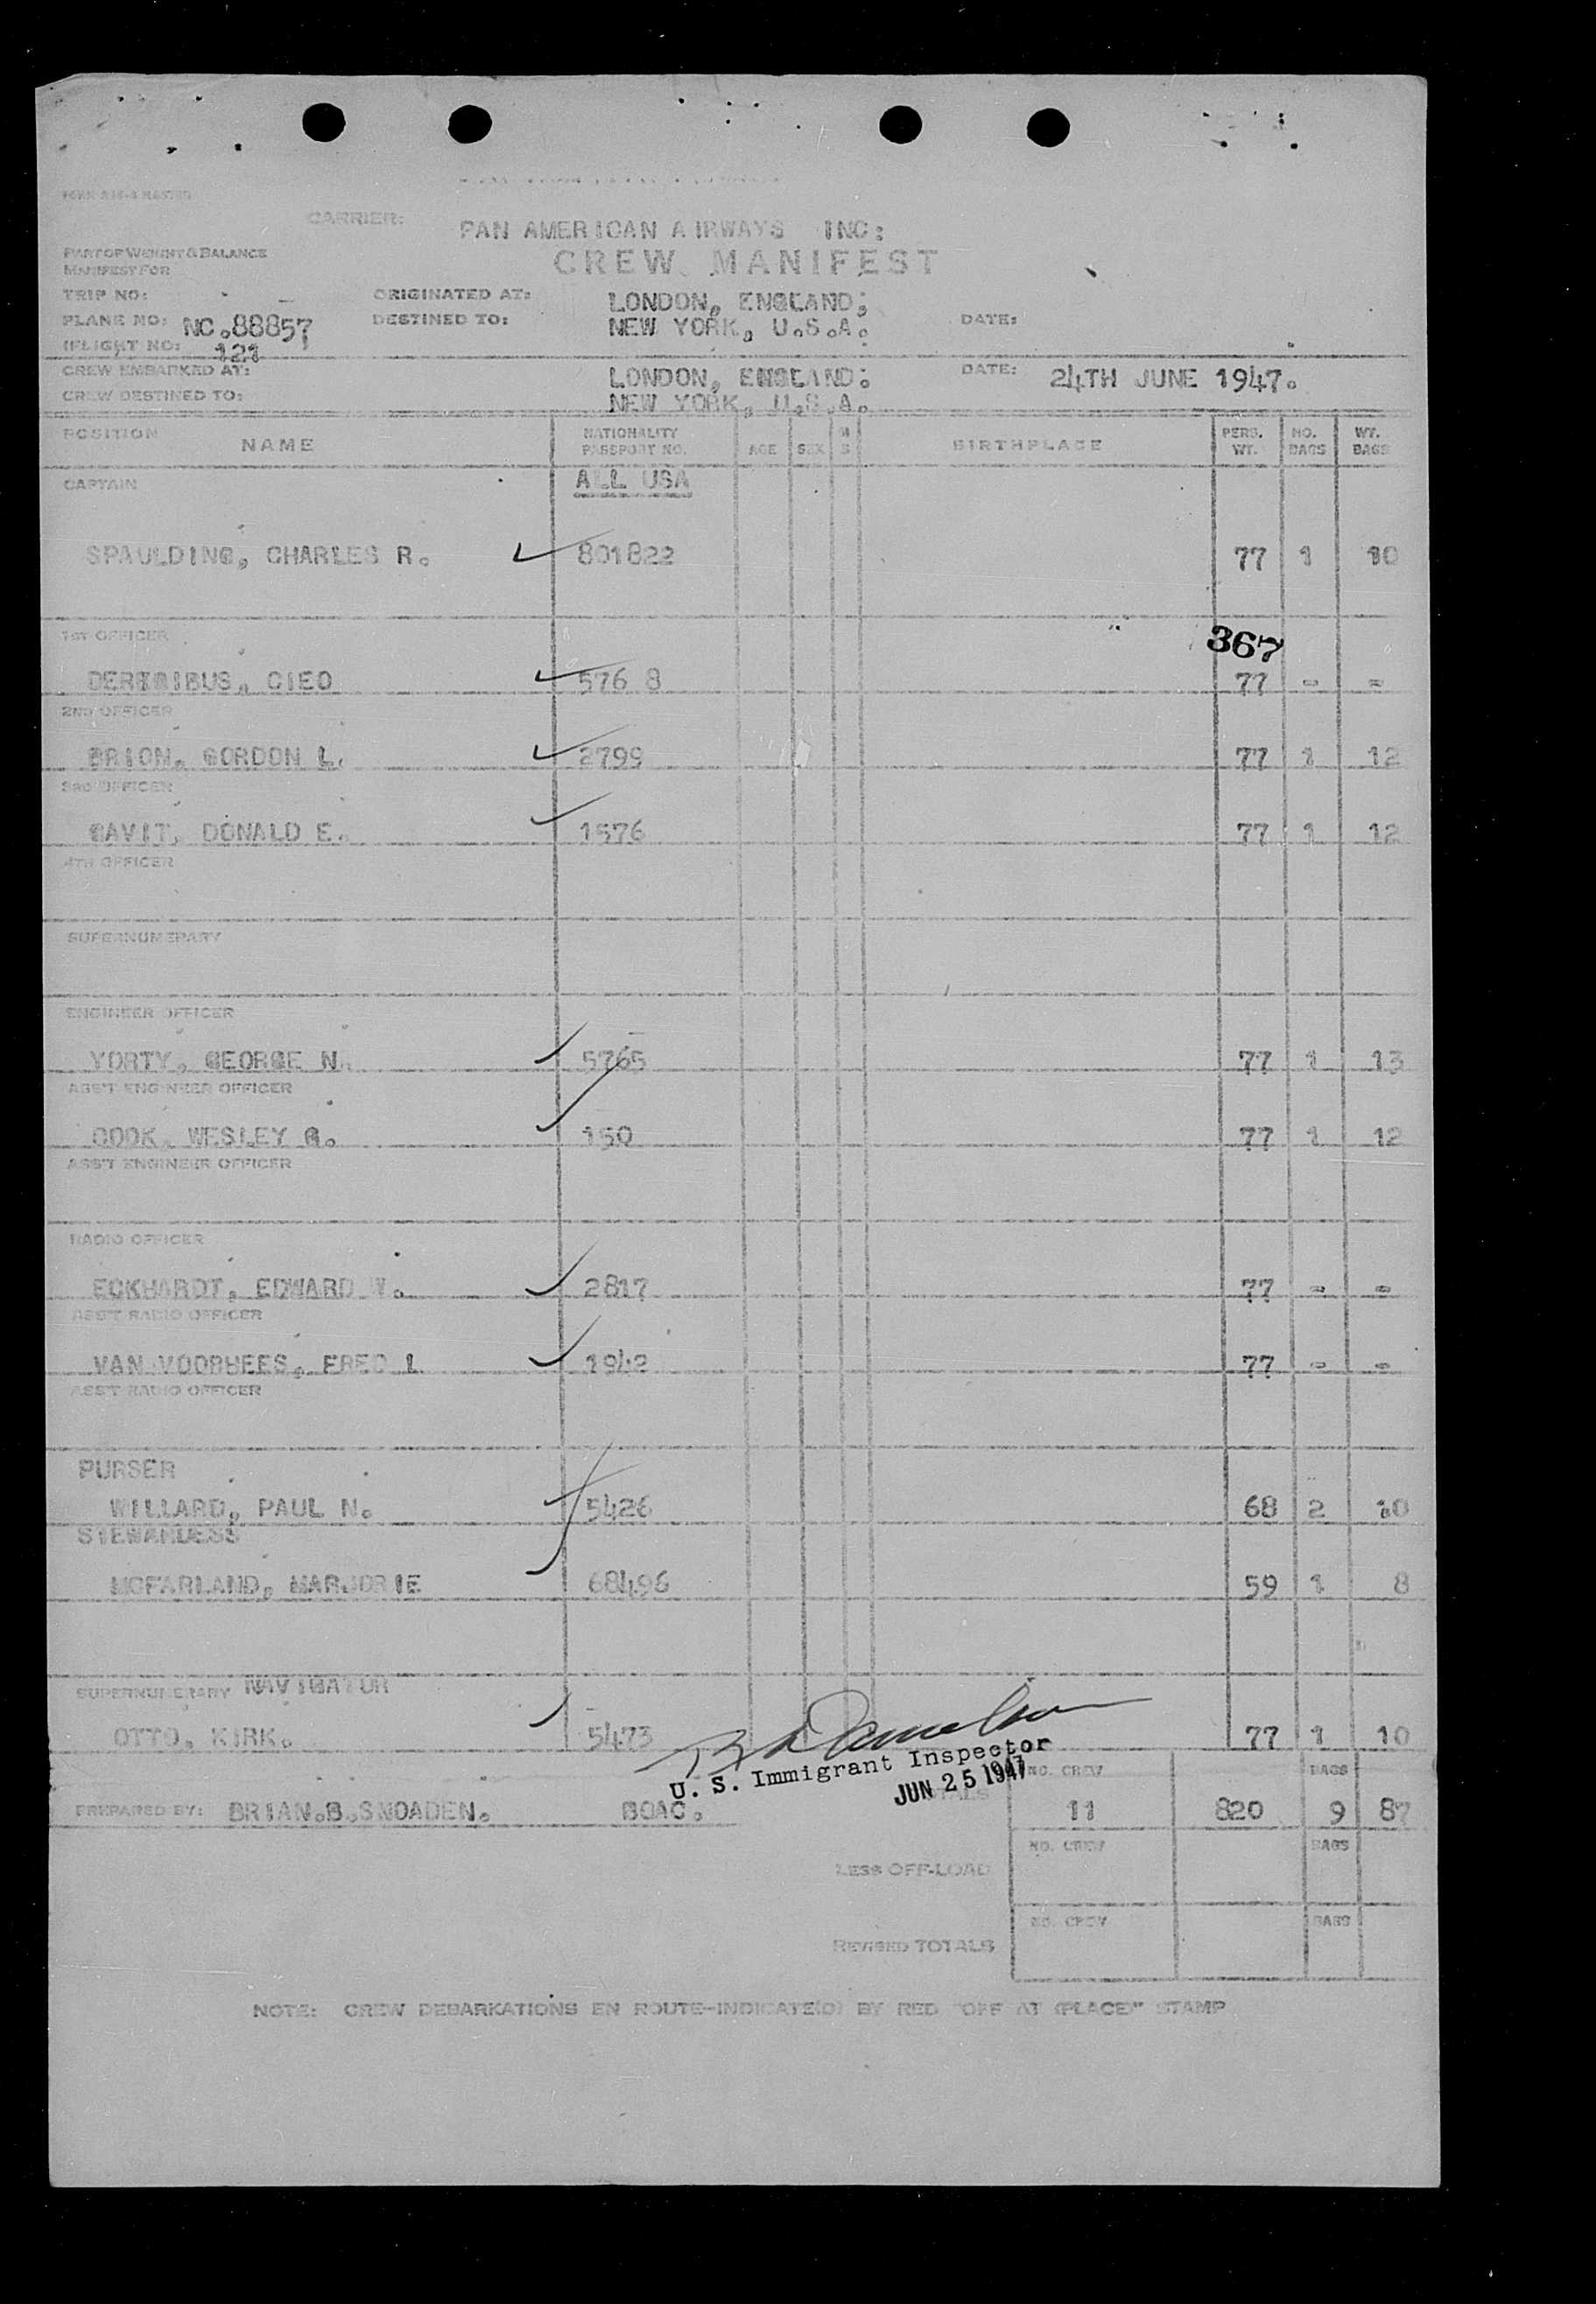 FORM 816-A MASTER
CARRIER: PAN AMERICAN AIRWAYS INC:
PART OF WEIGHT & BALANCE
MANIFEST FOR
CREW MANIFEST
TRIP NO: ORIGINATED AT: LONDON, ENGLAND;
PLANE NO: NC.88857 DESTINED TO: NEW YORK, U.S.A. DATE:
(FLIGHT NO: 121
CREW EMBARKED AT: LONDON, ENGLAND: DATE: 24TH JUNE 1947.
CREW DESTINED TO: NEW YORK, U.S.A.
POSITION NAME NATIONALITY PASSPORT NO. AGE SEX M S BIRTHPLACE PERS. WT. NO. BAGS WT. BAGS
CAPTAIN ALL USA
SPAULDING, CHARLES R. 801822 77 1 10
1ST OFFICER 367
576 8 77 - -
2ND OFFICER
BRION, GORDON L. 2799 77 1 12
3RD OFFICER
GAVIT, DONALD E. 1576 77 1 12
4TH OFFICER
SUPERNUMERARY
ENGINEER OFFICER
YORTY, GEORGE N. 5765 77 1 13
ASS'T ENGINEER OFFICER
COOK, WESLEY G. 150 77 1 12
ASS'T ENGINEER OFFICER
RADIO OFFICER
ECKHARDT, EDWARD W. 2817 77 - -
ASS'T RADIO OFFICER
VAN VOORHEES, FRED L 1942 77 - -
ASS'T RADIO OFFICER
PURSER
WILLARD, PAUL N. 5426 68 2 10
STEWARDESS
MCFARLAND, MARJORIE 68496 59 1 8
SUPERNUMERARY NAVIGATOR
OTTO, KIRK. 5473 77 1 10
U. S. Immigrant Inspector
JUN 25 1947
NO. CREW BAGS
PREPARED BY: BRIAN.B.SNOADEN. BOAC. TOTALS 11 820 9 87
NO. CREW BAGS
LESS OFF-LOAD
NO. CREW BAGS
REVISED TOTALS
NOTE: CREW DEBARKATIONS EN ROUTE-INDICATE(D) BY RED "OFF AT (PLACE)" STAMP